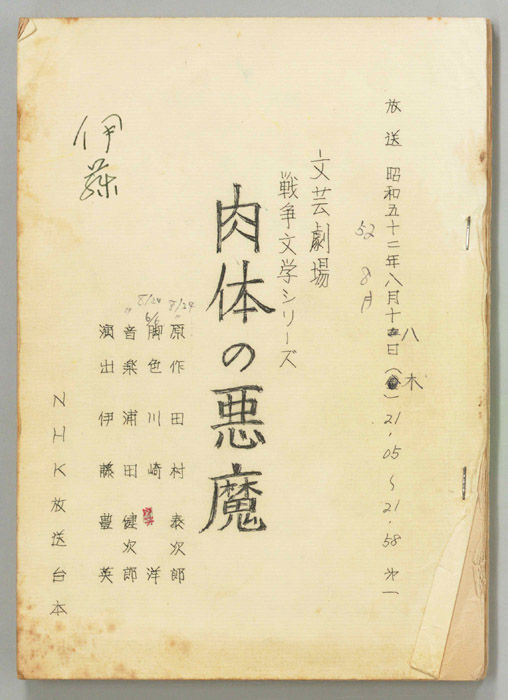 放送 昭和五十二年八月十八日(木) 21.05〜21.58 オ一
52 8月
文芸劇場
戦争文学シリーズ
肉体の悪魔
8/24 原作 田村 泰次郎
8/24 脚色 川崎 洋
音楽 浦田 健次郎
演出 伊藤 豊英
NHK放送台本
伊藤